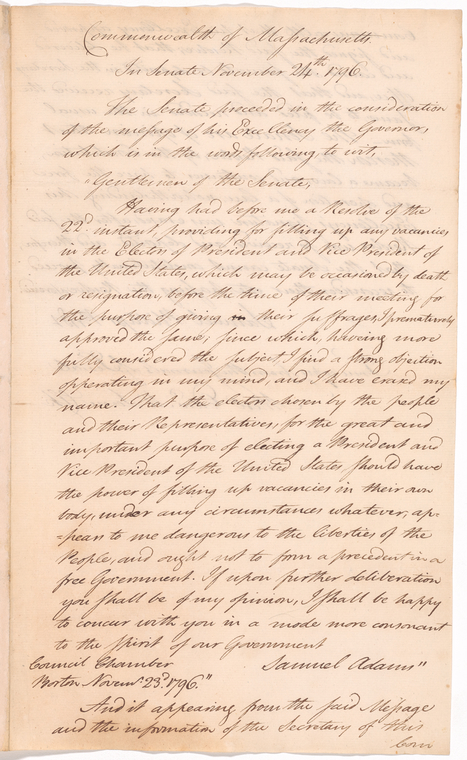 Commonwealth of Massachusetts.
In Senate November 24th. 1796.
The Senate proceeded in the consideration
of the message of his Excellency the Governor,
which is in the words following, to wit,
"Gentlemen of the Senate,
Having had before me a Resolve of the
22d. instant, providing for filling up any vacancies
in the Electors of President and Vice President of
the United States, which may be occasioned by death
or resignation, before the time of their meeting for
the purpose of giving in their suffrages, I prematurely
approved the same; since which, having more
fully considered the subject I find a strong objection
opperating in my mind, and I have erased my
name. That the electors chosen by the people
and their Representatives, for the great and
important purpose of electing a President and
Vice President of the United States, should have
the power of filling up vacancies in their own
body, under any circumstances whatever, ap=
=pears to me dangerous to the liberties of the
People, and ought not to form a precedent in a
free Government. If upon further deliberation
you shall be of my opinion, I shall be happy
to concur with you in a mode more consonant
to the spirit of our Government
Council Chamber Samuel Adams"
Boston Novemr. 23d. 1796."
And it appearing from the said Message
and the information of the Secretary of this
Com